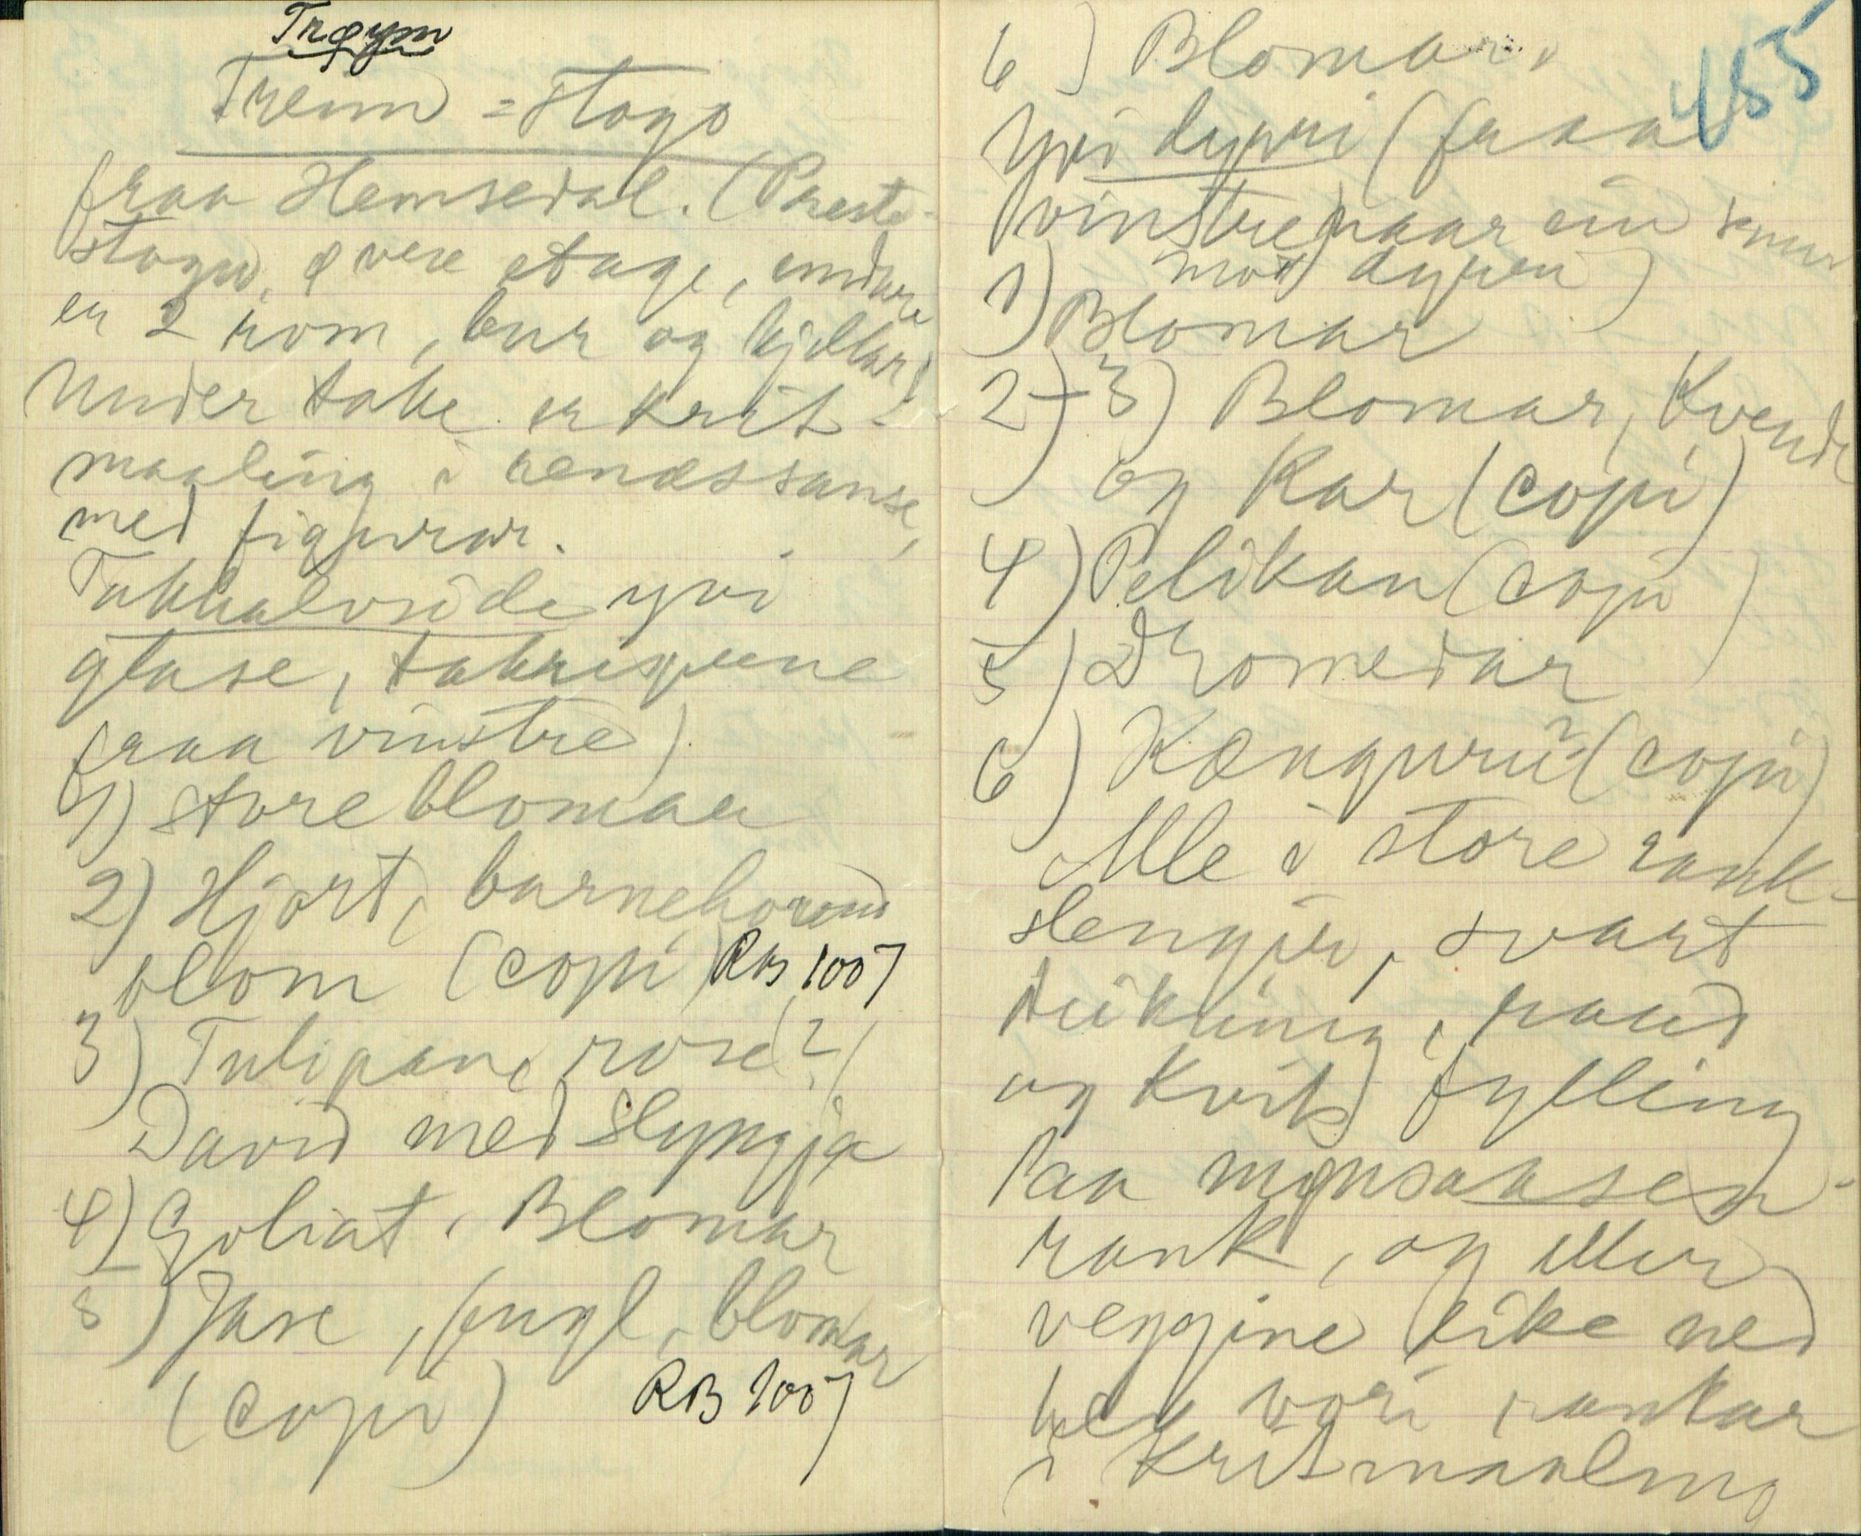 Trøym
Treim = stogo
fraa Hemsedal. (Preste-
stogu, øvere etage, undere
er 2 rom, bur og kjellar)
Under take er krit-
maaling i renæssanse,
med figurar.
Takhalvside yvi
glase, takrispune
fraa vinstre)
1) store blomar
2) Hjort, barnehovud
blom (copi) RB 1007
3) Tulipan, rose?,
David med slyngja
4) Goliat, Blomar
5) Jase, fugl, blomar
(copi) RB 1007
455
6) Blomar.
Yvi dyrri (fraa
vinstre naar ein snur
mot dyrri)
1) Blomar
2) + 3) Blomar, Kvende
og Kar (copi)
4) Pelikan (copi)
5) Dromedar
6) Kænguru? (copi)
Alle i store rank-
slengjir, svart
teikning, raud
og kvit fylling
Paa mynsaasen
rank, og eller
veggine like ned
hev vori rankar
i kritmaaling